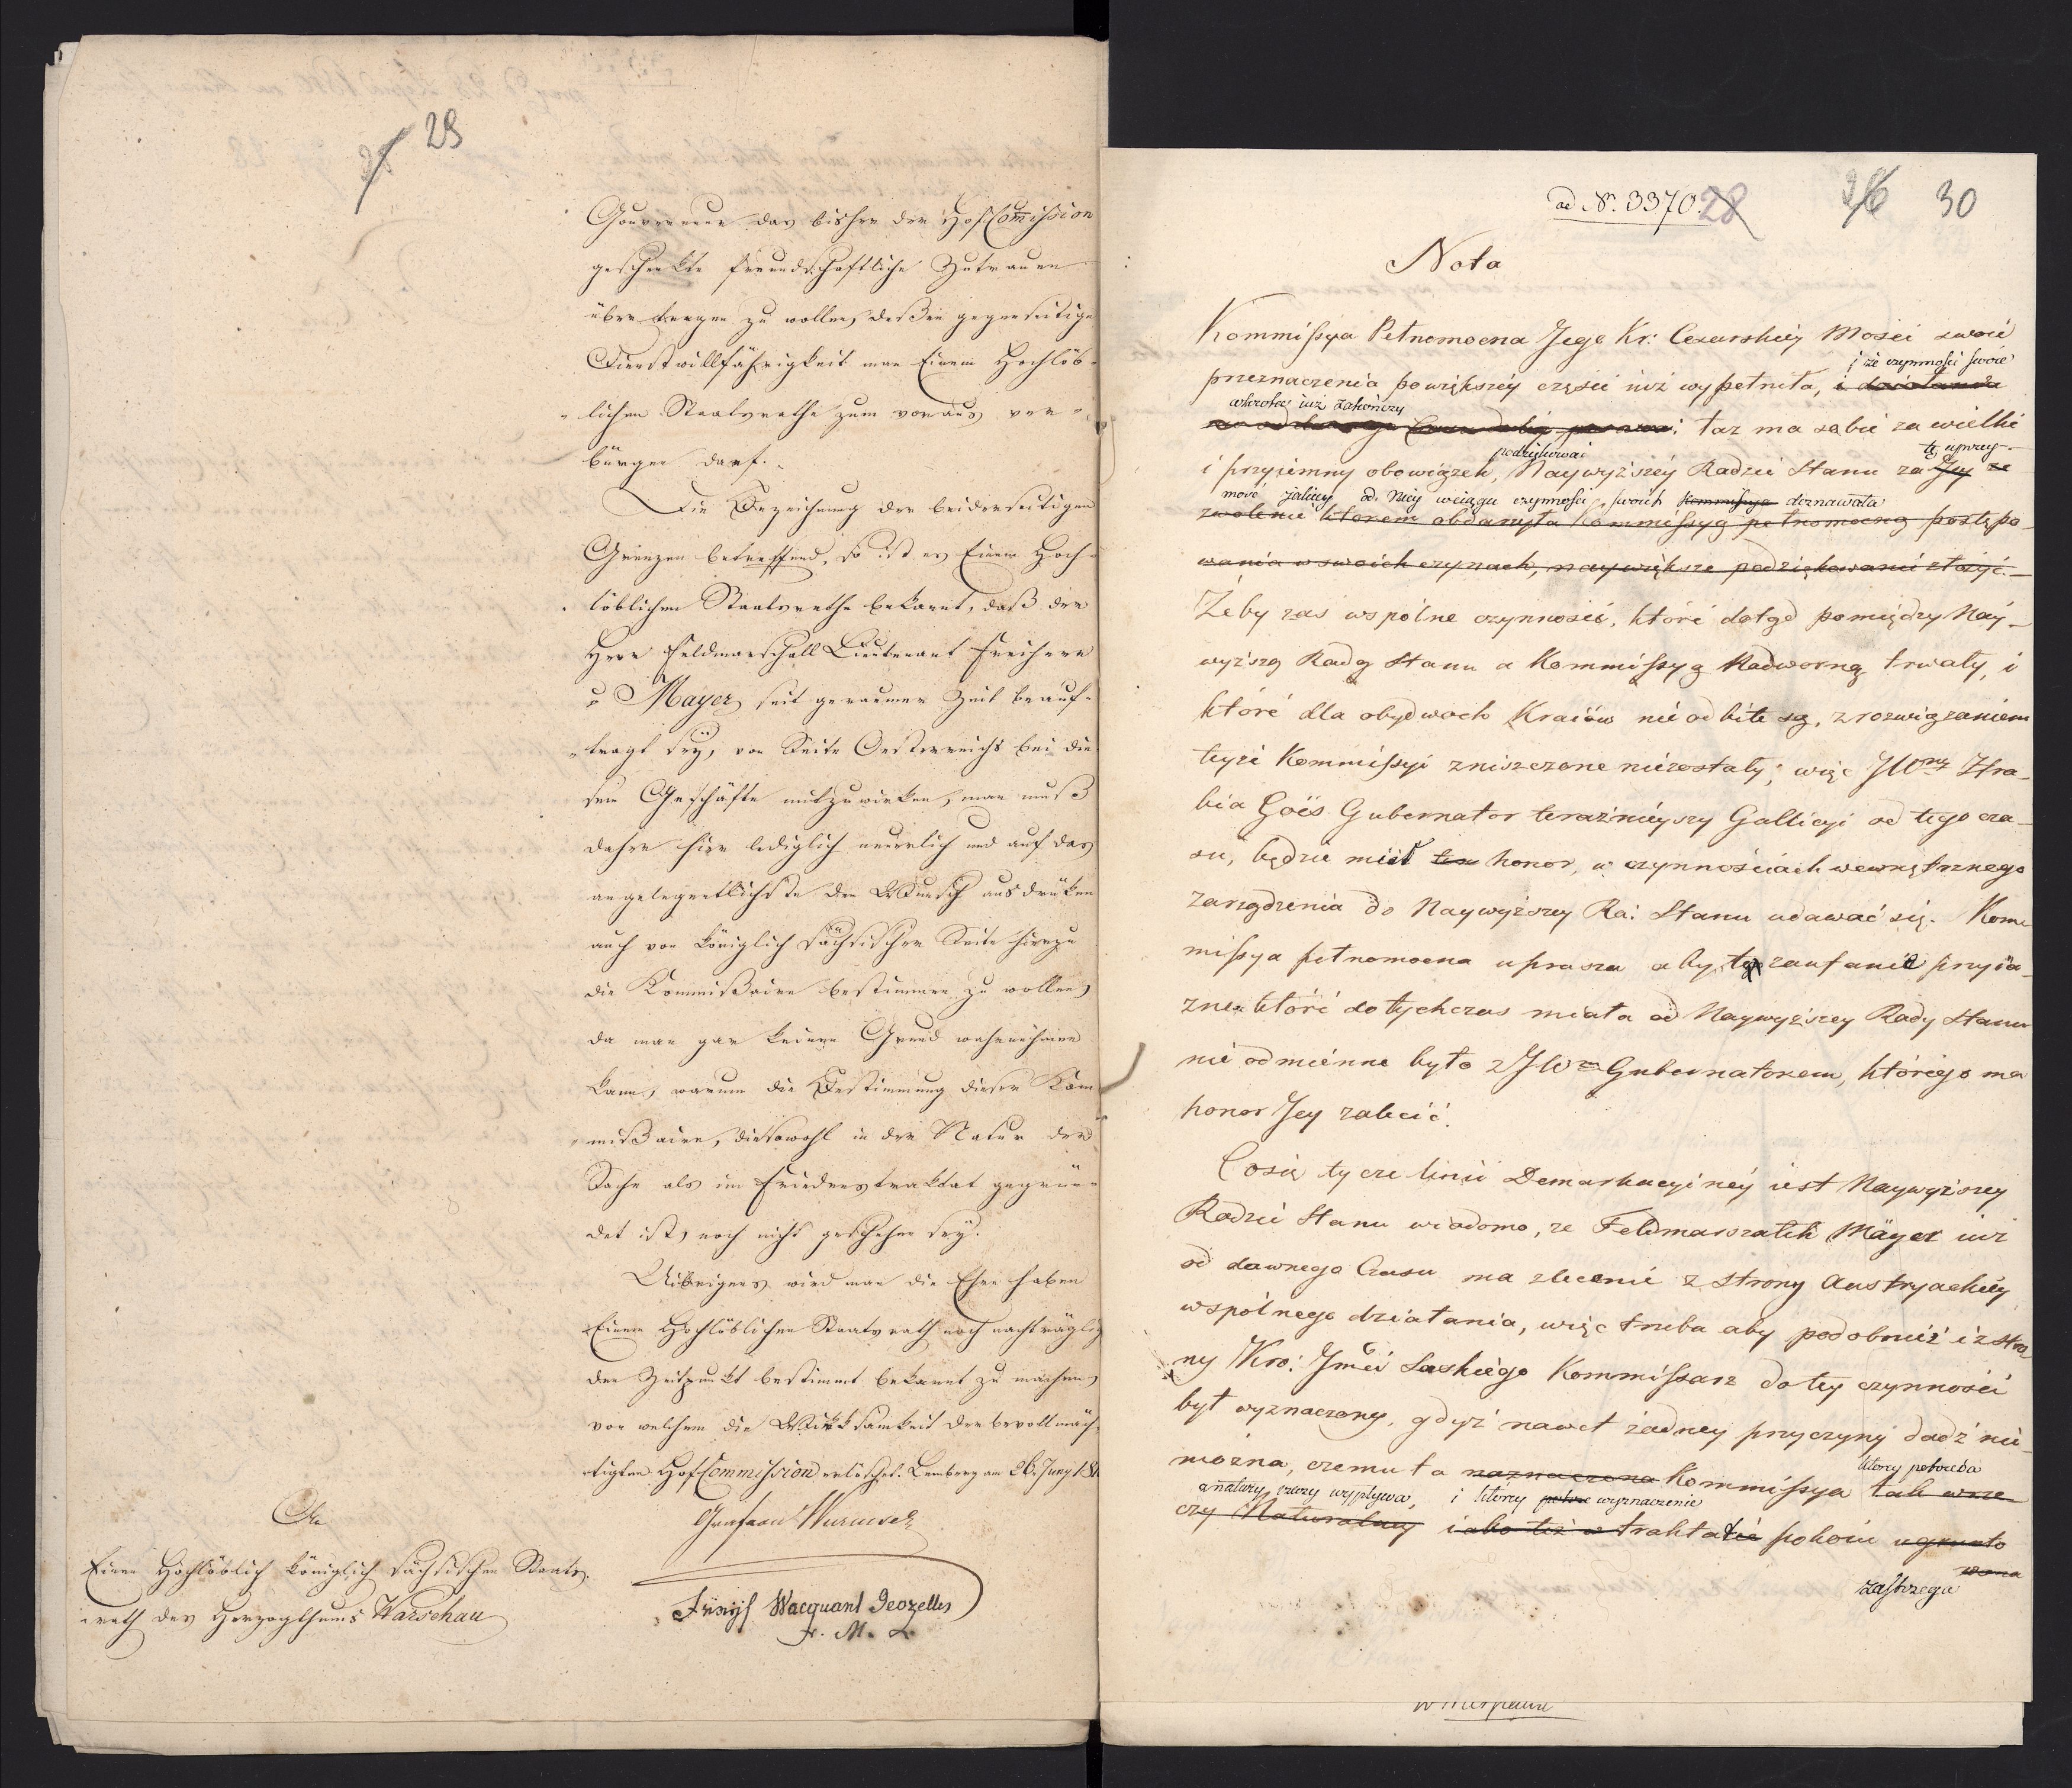 29
Gouverneur das bisher der HofCom̄ission
geschenkte freundschaftliche Zutrauen
übertragen zu wollen, deßen gegenseitige
Dienstwillfährigkeit man Einem Hochlöb-
lichen Staatsrathe zum voraus ver-
bürgen darf.
Die Bezeichnung der beiderseitigen
Grenzen betreffend, so ist es Einem Hoch-
löblichen Staatsrathe bekannt, daß der
Herr Feldmarschall Lieutenant Freiherr
v Mayer seit geraumer Zeit beauf-
tragt seÿ, von Seite Oesterreichs bei die
sem Geschäfte mitzuwirken, man muß
daher hier lediglich neuerlich und auf das
angelegentlichste den Wunsch ausdrüken
auch von königlich sächsischer Seite hierzu
die Kommißaire bestimmen zu wollen,
da man gar keinen Grund wahrnehmen
kann, warum die Bestimmung dieser Kom-
mißaire, die sowohl in der Natur der
Sache als im Friedenstraktat gegrün-
det ist, noch nicht geschehen seÿ.
Uibrigens wird man die Ehre haben
Einem Hochlöblichen Staatsrath noch nachträglich
den Zeitpunkt bestimmt bekannt zu machen,
von welchem die Wirksamkeit der bevollmäch-
tigten HofCommission erlöschet. Lemberg am 26. Juny
Graf von Wurmser
Freyh Wacquant Geozelles
F. M. L.
An
Einen Hochlöblich königlich sächsischen Staats-
rath des Herzogthums Warschau
ad N. 3370. 28 26 30
Nota
Kommissya Pełnomocna Jego Kr: Cesarskiéy Mości swoié
i że czynności swoie
przeznaczenia powiększéy części iuż wypełniła, i
wkrotce iuż zakończy
taż ma sobie za wielki
podziękować tę uprzey-
i przyiemny obowiązek, Naywyższéy Radzié Stanu za Jey ze
mość jakiey od Niey wciągu czynności swoich Kommissya doznawała
zwolenie ktorem obdarzyła Kommissyą pełnomocną postępo-
wania w swoich czynach, naywiększe podziękowanié złożyć.—
Żeby zaś wspólne czynności, któré dotąd pomiędzy Náy-
wyższą Radą Stanu a Kommissyą Nadworną trwały, i
któré dla obydwoch Kraiów nié odbite są, z rozwiązaniem
teyże Kommissyi zniszczone niézostały; więc JWny Hra-
bia Goës Gubernator teraźniéyszy Gallicyi od tego cza-
su, będzie miał ten honor, w czynnościach wewnętrznego
zarządzenia do Naywyższey Ra: Stanu udawać się. Kom-
missya pełnomocna uprasza aby to zaufanie przyia-
zne któré dotychczas miała od Naywyższey Rady Stanu
nié odmiénne było z JWm Gubernatorem, któriego ma
honor Jey zalecić.
Cosię tycze linii Demarkacyinéy iest Naywyższey
Radzié Stanu wiadomo, że Feldmarszałek Mäyer iuż
od dawnego Czasu ma zlecenié z Strony Austryackiéy
wspólnego działania, więc trzeba aby podobnież i z Stro
ny Kró: Jmći Saskiégo Kommissarz do téy czynności
był wyznaczony, gdyż nawet żadney przyczyny dadź nié-
można, czemu ta naznaczona Kommissya tak w rze-
ktorey potrzeba
z natury rzeczy wypływa, i ktorey potrze wyznaczenie
czy Naturalney iako też w traktatié pokoiu ugrunto
wana
zastrzega